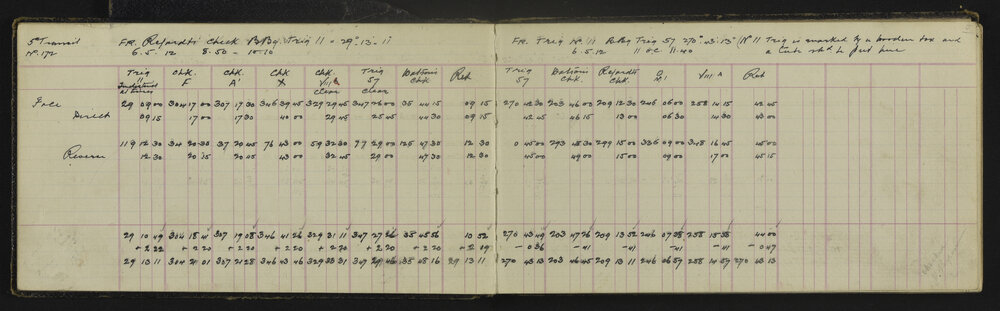 5" Transit
No. 172
FR. Refardt's Check B.Bg. Trig 11 = 29° 13' 11
6. 5. 12 8.50 - 10.10
Trig 11 Chk. F Chk. A' Chk X Chk VIII A Clear Trig 57 Clear Watson's Chk Ret
Face 29 09 00 304 17 00 307 17 30 346 39 45 329 29 45 347 26 00 35 44 15 09 15
Direct 09 15 17 00 17 30 40 00 29 45 25 45 44 30 09 15
119 12 30 34 20 30 37 20 45 76 43 00 59 32 30 77 29 00 125 47 30 12 30
Reverse 12 30 20 15 20 45 43 00 32 45 29 00 47 30 12 30
29 10 49 304 18 41 307 19 08 346 41 26 329 31 11 347 27 26 35 45 56 10 52
+ 2 22 + 2 20 + 2 20 + 2 20 + 2 20 + 2 20 + 2 20 + 2 19
29 13 11 304 21 01 307 21 28 346 43 46 329 33 31 347 29 46 35 48 16 29 13 11
FR. Trig No. 11 B.Bg Trig 57 270° 43' 13" (No 11 Trig is marked by a wooden box and
6.5.12 11 o.c. 11.40
Trig 57 Watson's Chk. Refardt's Chk. VIII A Ret
270 42 30 203 46 00 209 12 30 246 06 00 258 14 15 42 45
42 45 46 15 13 00 06 30 14 30 43 00
0 45 00 293 48 30 299 15 00 336 09 00 348 16 45 45 00
45 00 49 00 15 00 09 00 17 00 45 15
270 43 49 203 47 26 209 13 52 246 07 38 258 15 38 44 00
- 0 36 - 41 - 41 - 41 - 41 - 0 47
270 43 13 203 46 45 209 13 11 246 06 57 258 14 57 270 43 13